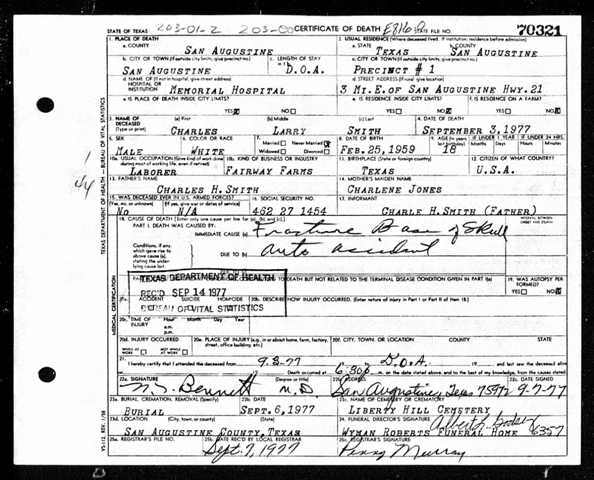 203-01-2 203-00
STATE OF TEXAS CERTIFICATE OF DEATH STATE FILE NO. 70321
1. PLACE OF DEATH 2. USUAL RESIDENCE (Where deceased lived. If institution: residence before admission)
a. COUNTY a. STATE b. COUNTY
SAN AUGUSTINE TEXAS SAN AUGUSTINE
b. CITY OR TOWN (If outside city limits, give precinct no.) c. LENGTH OF STAY c. CITY OR TOWN (If outside city limits, give precinct no.)
SAN AUGUSTINE D.O.A. PRECINCT # 1
d. NAME OF (If not in hospital, give street address) HOSPITAL OR INSTITUTION d. STREET ADDRESS (If rural, give location)
MEMORIAL HOSPITAL 3 MI.E.OF SAN AUGUSTINE HWY.21
e. IS PLACE OF DEATH INSIDE CITY LIMITS? e. IS RESIDENCE INSIDE CITY LIMITS? f. IS RESIDENCE ON A FARM?
YES NO YES NO YES NO
3. NAME OF DECEASED (Type or print) (a) First (b) Middle (c) Last 4. DATE OF DEATH
CHARLES LARRY SMITH SEPTEMBER 3,1977
5. SEX 6. COLOR OR RACE 7. Married Never Married Widowed Divorced 8. DATE OF BIRTH 9. AGE IF UNDER 1 YEAR IF UNDER 24 HRS.
Months Days Hours Min.
MALE WHITE FEB.25,1959 18
10a. USUAL OCCUPATION (Give kind of work done during most of working life, even if retired) 10b. KIND OF BUSINESS OR INDUSTRY 11. BIRTHPLACE (State or foreign country) 12. CITIZEN OF WHAT COUNTRY?
LABORER FAIRWAY FARMS TEXAS U.S.A.
13. FATHER'S NAME 14. MOTHER'S MAIDEN NAME
CHARLES H.SMITH CHARLENE JONES
15. WAS DECEASED EVER IN U.S. ARMED FORCES? 16. SOCIAL SECURITY NO. 17. INFORMANT
(Yes, no, or unknown) (If yes, give war or dates of service)
NO N/A 462 27 1454 CHARLE H.SMITH (FATHER)
18. CAUSE OF DEATH (Enter only one cause per line for (a), (b), and (c).) INTERVAL BETWEEN ONSET AND DEATH
PART I. DEATH WAS CAUSED BY:
IMMEDIATE CAUSE (a) Fracture Base of Skull
Conditions, if any, which gave rise to above cause (a), stating the underlying cause last.
DUE TO (b) auto accident
DEATH BUT NOT RELATED TO THE TERMINAL DISEASE CONDITION GIVEN IN PART I(a) 19. WAS AUTOPSY PERFORMED?
YES NO
TEXAS DEPARTMENT OF HEALTH
REC'D SEP 14 1977
BUREAU OF VITAL STATISTICS
ACCIDENT SUICIDE HOMICIDE 20b. DESCRIBE HOW INJURY OCCURRED. (Enter nature of injury in Part I or Part II of item 18.)
20c. TIME OF INJURY Hour Month Day Year
a.m.
p.m.
20d. INJURY OCCURRED 20e. PLACE OF INJURY (e.g., in or about home, farm, factory, street, office building, etc.) 20f. CITY, TOWN, OR LOCATION COUNTY STATE
21. I hereby certify that I attended the deceased from 9-3-77 D.O.A. 19 and last saw the deceased alive
Death occurred at 6:30 p m. on the date stated above, and to the best of my knowledge, from the causes stated.
22a. SIGNATURE (Degree or title) 22b. ADDRESS 22c. DATE SIGNED
Bennett M.D. San Augustine, Texas 75972 9-7-77
23a. BURIAL, CREMATION, REMOVAL (Specify) 23b. DATE 23c. NAME OF CEMETERY OR CREMATORY
BURIAL SEPT.6,1977 LIBERTY HILL CEMETERY
23d. LOCATION (City, town, or county) (State) 24. FUNERAL DIRECTOR'S SIGNATURE
SAN AUGUSTINE COUNTY,TEXAS WYMAN ROBERTS FUNERAL HOME 6357
25a. REGISTRAR'S FILE NO. 25b. DATE REC'D BY LOCAL REGISTRAR 25c. REGISTRAR'S SIGNATURE
Sept. 7, 1977 Murray
TEXAS DEPARTMENT OF HEALTH - BUREAU OF VITAL STATISTICS
MEDICAL CERTIFICATION
VS-112 REV. 1/58